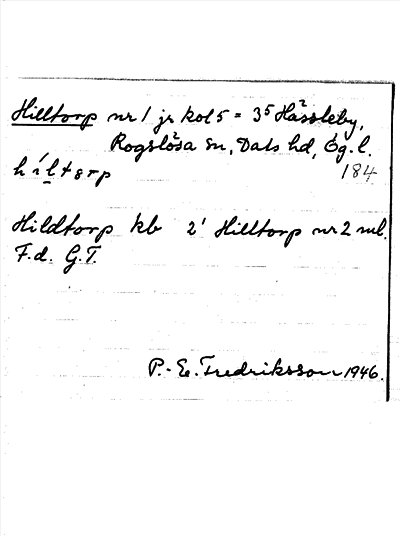 Hilltorp nr 1 jr kol 5 = 3⁵ Hässleby,
Rogslösa sn, Dals hd, Ög. l.
184
Hildtorp kb 2¹ Hilltorp nr 2 ml.
F.d. G.T.
P.-E. Fredriksson 1946.